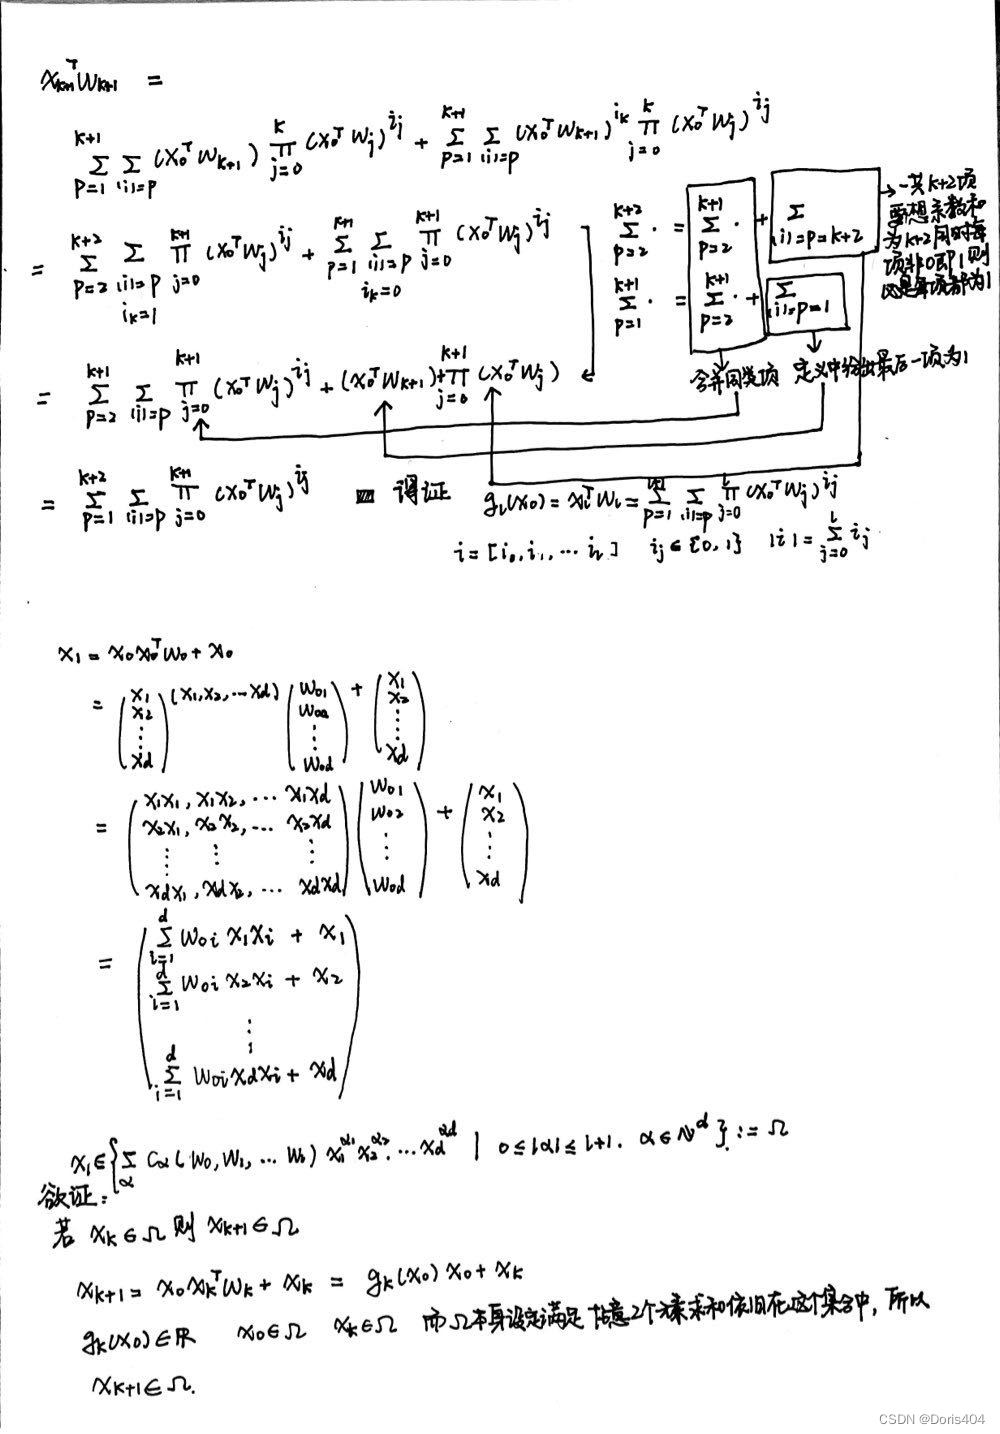 x_{k+1}^T W_{k+1} =
\sum_{p=1}^{k+1} \sum_{|i|=p} (x_0^T W_{k+1}) \prod_{j=0}^{k} (x_0^T W_j)^{i_j} + \sum_{p=1}^{k+1} \sum_{|i|=p} (x_0^T W_{k+1})^{i_k} \prod_{j=0}^{k} (x_0^T W_j)^{i_j}
= \sum_{p=2}^{k+2} \sum_{|i|=p, i_k=1} \prod_{j=0}^{k+1} (x_0^T W_j)^{i_j} + \sum_{p=1}^{k+1} \sum_{|i|=p, i_k=0} \prod_{j=0}^{k+1} (x_0^T W_j)^{i_j}
\sum_{p=2}^{k+2} · = \sum_{p=2}^{k+1} · + \sum_{|i|=p=k+2}
\sum_{p=1}^{k+1} · = \sum_{p=2}^{k+1} · + \sum_{|i|=p=1}
一共k+2项
要想系数和
为k+2同时每
项非0即1则
每项都为1
合并同类项 定义中给出最后一项为1
= \sum_{p=2}^{k+1} \sum_{|i|=p} \prod_{j=0}^{k+1} (x_0^T W_j)^{i_j} + (x_0^T W_{k+1}) + \prod_{j=0}^{k+1} (x_0^T W_j)
= \sum_{p=1}^{k+2} \sum_{|i|=p} \prod_{j=0}^{k+1} (x_0^T W_j)^{i_j} 得证
g_l(x_0) = x_l^T W_l = \sum_{p=1}^{l+1} \sum_{|i|=p} \prod_{j=0}^{l} (x_0^T W_j)^{i_j}
i = [i_0, i_1, ... i_l] i_j ∈ {0, 1} |i| = \sum_{j=0}^{l} i_j
x_1 = x_0 x_0^T W_0 + x_0
= (x_1 x_2 ⋮ x_d) (x_1, x_2, ... x_d) (W_{01} W_{02} ⋮ W_{0d}) + (x_1 x_2 ⋮ x_d)
= (x_1x_1, x_1x_2, ... x_1x_d x_2x_1, x_2x_2, ... x_2x_d ⋮ ⋮ ⋮ x_dx_1, x_dx_2, ... x_dx_d) (W_{01} W_{02} ⋮ W_{0d}) + (x_1 x_2 ⋮ x_d)
= (\sum_{i=1}^{d} W_{0i} x_1 x_i + x_1
\sum_{i=1}^{d} W_{0i} x_2 x_i + x_2
⋮
\sum_{i=1}^{d} W_{0i} x_d x_i + x_d)
x_l ∈ {\sum_α C_α(W_0, W_1, ... W_l) x_1^{α_1} x_2^{α_2} ... x_d^{α_d} | 0 ≤ |α| ≤ l+1. α ∈ N^d}. := Ω
欲证:
若 x_k ∈ Ω 则 x_{k+1} ∈ Ω
x_{k+1} = x_0 x_k^T W_k + x_k = g_k(x_0) x_0 + x_k
g_k(x_0) ∈ R x_0 ∈ Ω x_k ∈ Ω 而Ω本身设定满足任意2个元素求和依旧在这个集合中, 所以
x_{k+1} ∈ Ω.
CSDN @Doris404